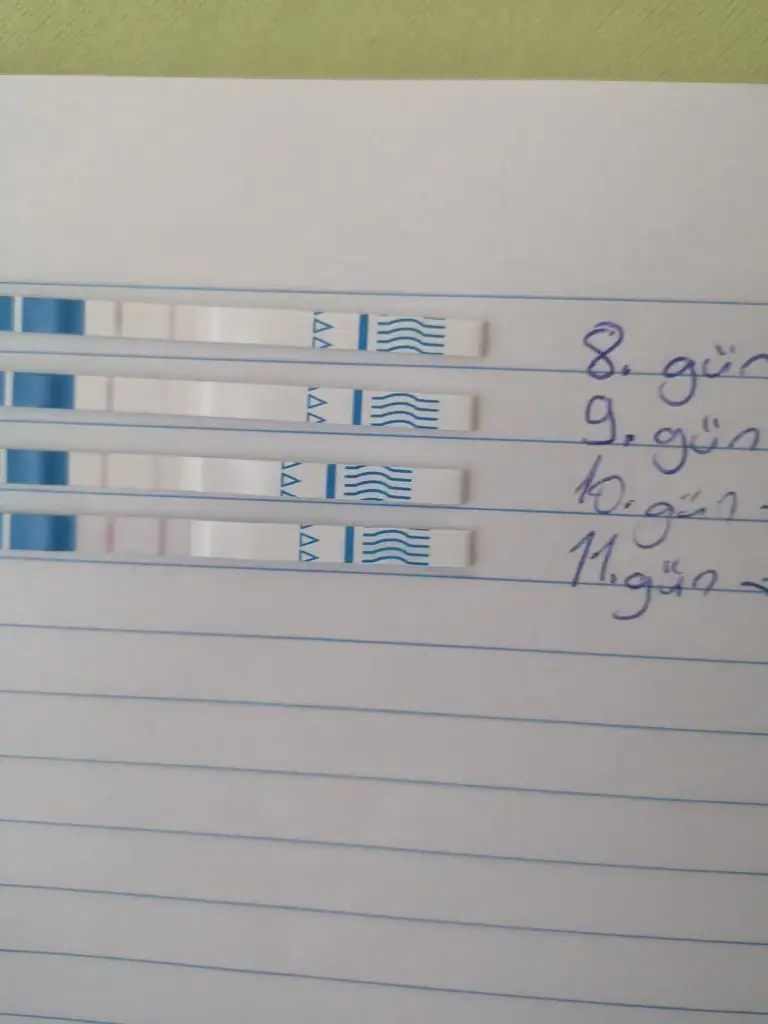 8. gün
9. gün
10. gün -
11. gün →